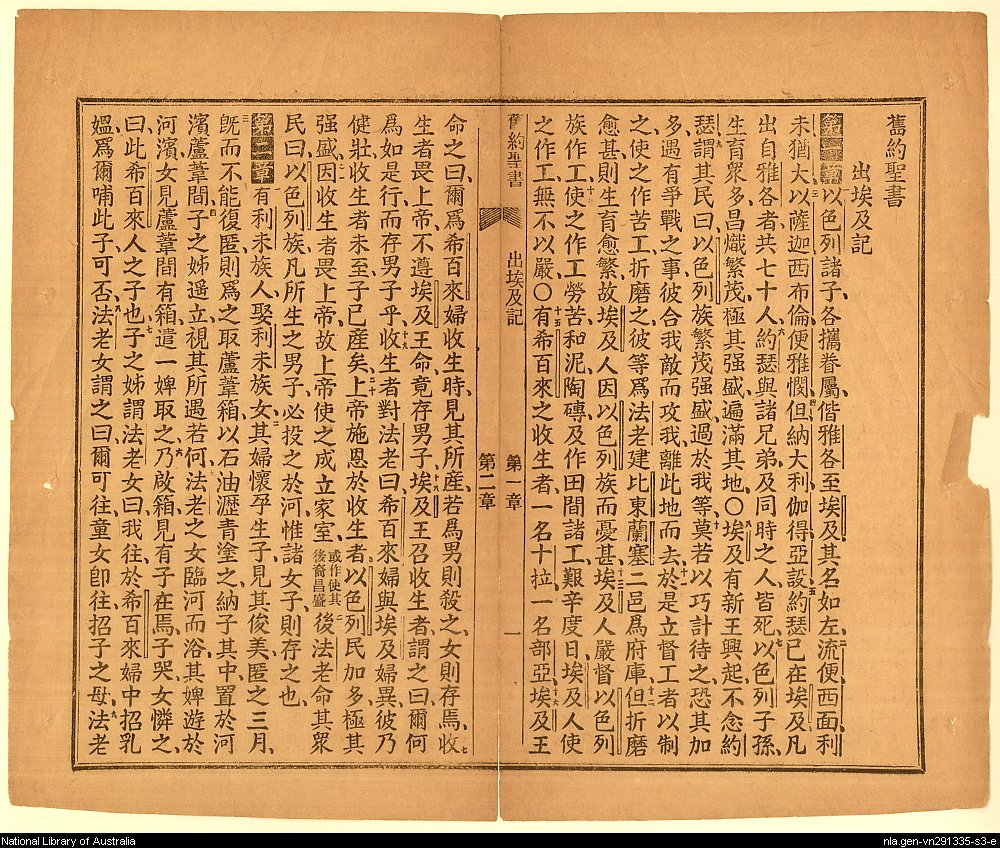 舊約聖書
出埃及記
第一章以色列諸子各攜眷屬偕雅各至埃及其名如左流便西面利
未猶大以薩迦西布倫便雅憫但納大利伽得亞設約瑟已在埃及凡
出自雅各者共七十人約瑟與諸兄弟及同時之人皆死以色列子孫
生育衆多昌熾繁茂極其强盛遍滿其地〇埃及有新王興起不念約
瑟謂其民曰以色列族繁茂强盛過於我等莫若以巧計待之恐其加
多遇有爭戰之事彼合我敵而攻我離此地而去於是立督工者以制
之使之作苦工折磨之彼等爲法老建比東蘭塞二邑爲府庫但折磨
愈甚則生育愈繁故埃及人因以色列族而憂甚埃及人嚴督以色列
族作工使之作工勞苦和泥陶磚及作田間諸工艱辛度日埃及人使
之作工無不以嚴〇有希百來之收生者一名十拉一名部亞埃及王
舊約聖書 出埃及記 第一章 一
第二章
命之曰爾爲希百來婦收生時見其所產若爲男則殺之女則存焉收
生者畏上帝不遵埃及王命竟存男子埃及王召收生者謂之曰爾何
爲如是行而存男子乎收生者對法老曰希百來婦與埃及婦異彼乃
健壯收生者未至子已產矣上帝施恩於收生者以色列民加多極其
强盛因收生者畏上帝故上帝使之成立家室或作使其後裔昌盛後法老命其衆
民曰以色列族凡所生之男子必投之於河惟諸女子則存之也
第二章有利未族人娶利未族女其婦懷孕生子見其俊美匿之三月
旣而不能復匿則爲之取蘆葦箱以石油瀝青塗之納子其中置於河
濱蘆葦間子之姊遥立視其所遇若何法老之女臨河而浴其婢遊於
河濱女見蘆葦間有箱遣一婢取之乃啟箱見有子在焉子哭女憐之
曰此希百來人之子也子之姊謂法老女曰我往於希百來婦中招乳
媼爲爾哺此子可否法老女謂之曰爾可往童女卽往招子之母法老
National Library of Australia
nla.gen-vn291335-s3-e